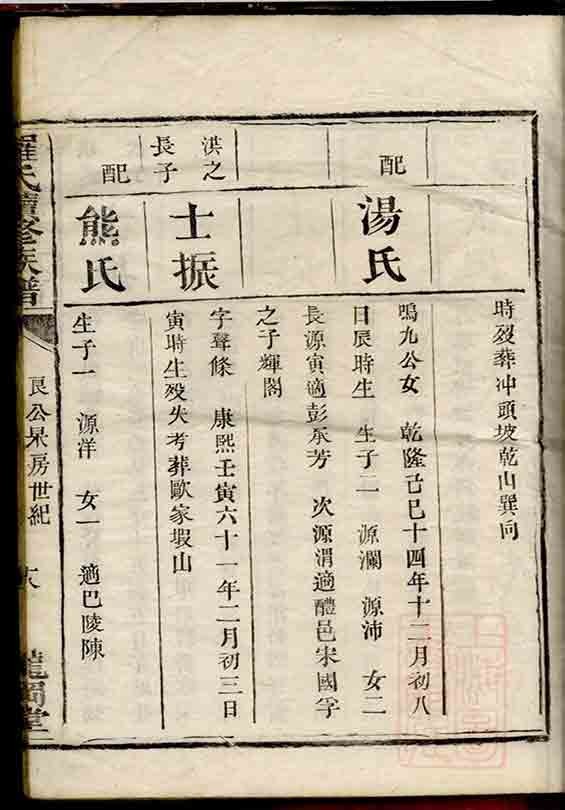 時歿葬冲頭坡乾山巽向
配
湯氏
鳴九公女 乾隆己巳十四年十二月初八
日辰時生 生子二 源瀾 源沛 女二
長源寅適彭承芳 次源渭適醴邑宋國孚
之子輝閣
洪之
長子
士振
字聲條 康熙壬寅六十一年二月初三日
寅時生歿失考葬歐家塅山
配
熊氏
生子一 源洋 女一 適巴陵陳
羅氏續修族譜
良公杲房世紀